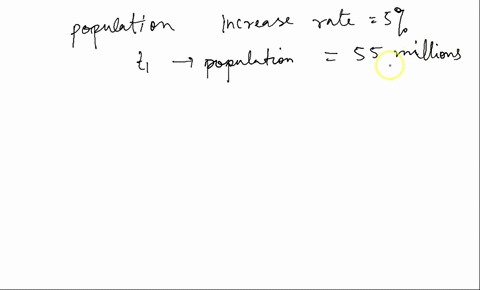 population Increase rate = 5%
t1 → population = 55 millions